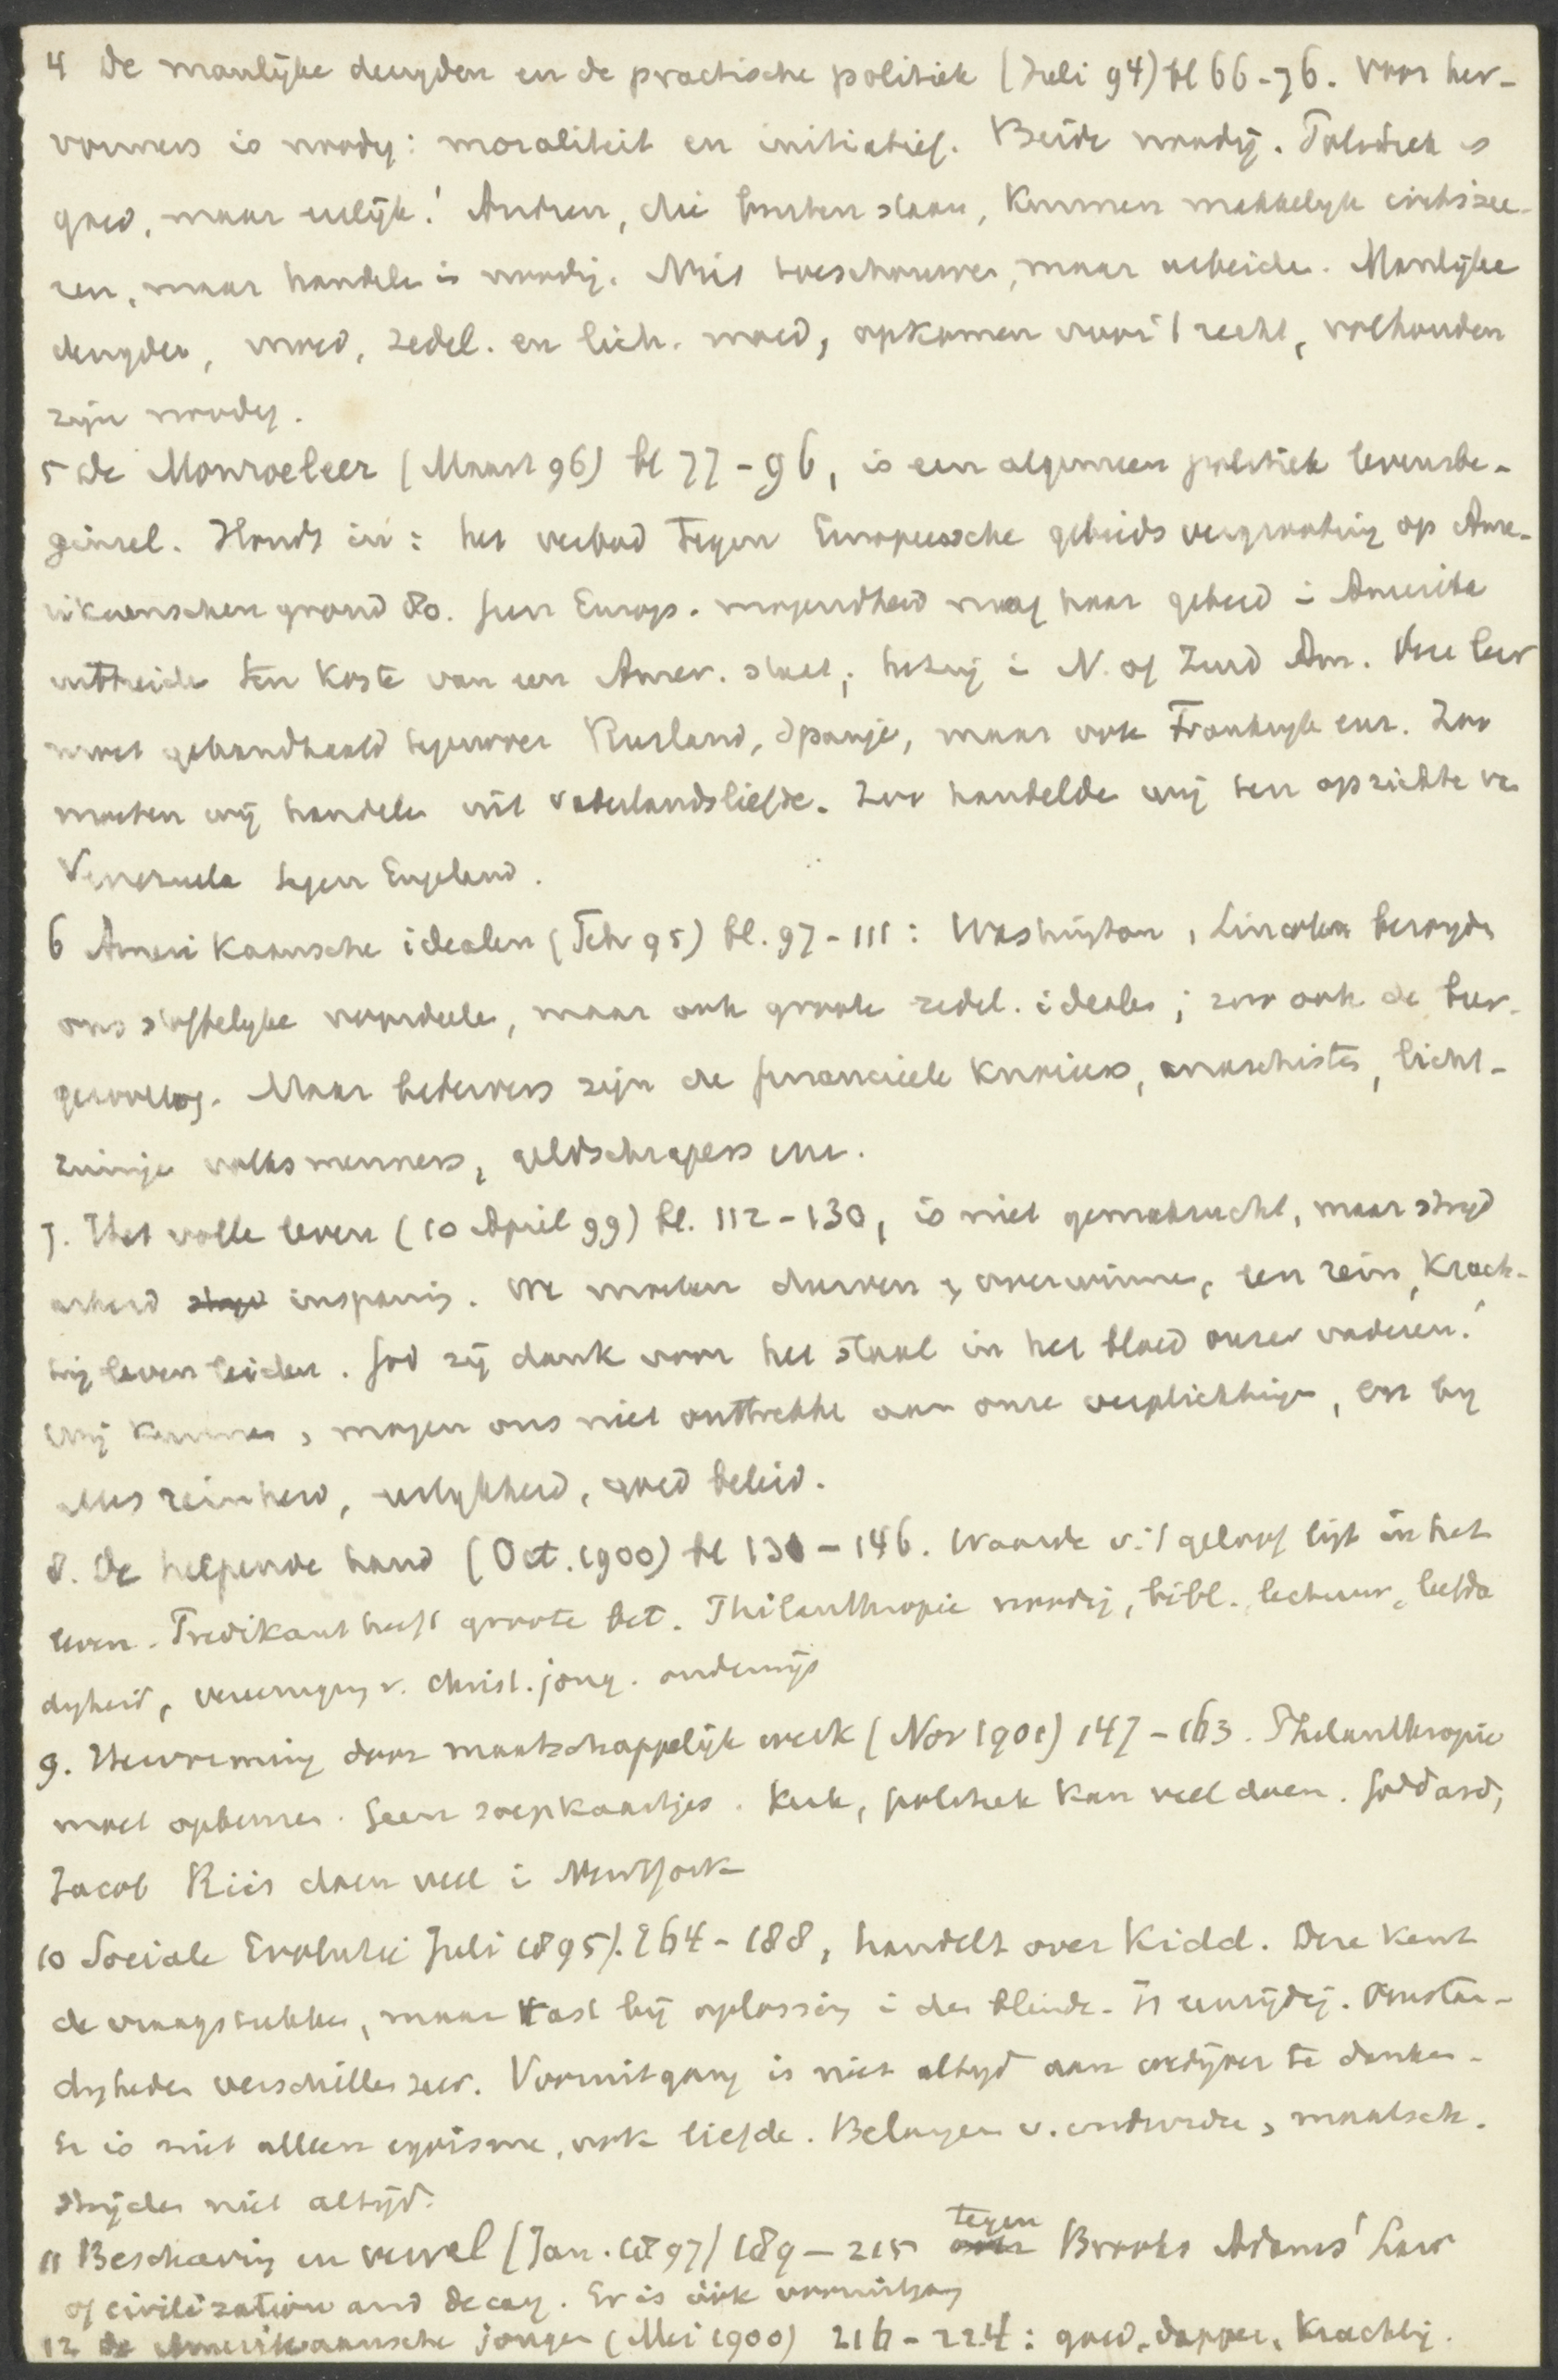 4 De manlijke deugden en de practische politiek (Juli 94) bl 66-76. Voor her-
vormers is noodig: moraliteit en initiatief. Beide noodig. Politiek is
goed, maar eerlijk! Andren, die buiten staan, kunnen makkelyk critisee-
ren, maar handelen is noodig. Niet toeschouwer, maar arbeider. Manlijke
deugden, moed, zedel. en lich. moed, opkomen voor 't recht, volhouden
zijn noodig.
5 De Monroeleer (Maart 96) bl 77-96, is een algemeen politiek levensbe-
ginsel. Houdt in: het verbod tegen Europeesche gebiedsvergrooting op Ame-
rikaanschen grond 80. Geen Europ. mogendheid mag haar gebied in Amerika
uitbreiden ten koste van een Amer. staat, hetzij in N. of Zuid Am. Deze leer
moet gehandhaafd tegenover Rusland, Spanje, maar ook Frankrijk enz. Zoo
moeten wij handelen uit vaderlandsliefde. Zoo handelde wij ten opzichte van
Venezuela tegen Engeland.
6 Amerikaansche idealen (Febr 95) bl. 97-111: Washington, Lincoln bezorgden
ons stoffelyke voordeelen, maar ook groote zedel. idealen; zoo ook de bur-
geroorlog. Maar bedervers zijn de financieele knoeiers, anarchisten, licht-
zinnige volksmenners, geldschrapers enz.
7. Het volle leven (10 April 99) bl. 112-130, is niet gemakzucht, maar strijd
arbeid inspanning. We moeten durven & overwinnen, een rein, krach-
tig leven leiden. God zij dank voor het staal in het bloed onzer vaderen!
Wij kunnen, mogen ons niet onttrekken aan onze verplichtingen, en bij
alles reinheid, eerlijkheid, goed beleid.
8. De helpende hand (Oct. 1900) bl 130-146. Waarde v. 't geloof ligt in het
leven. Predikant heeft groote bet. Philanthropie noodig, bibl. lectuur, liefda
digheid, vereeniging v. christ. jong. onderwijs
9. Hervorming door maatschappelijk werk (Nov 1901) 147-163. Philanthropie
moet opbeuren. Geen soepkaartjes. Kerk, politiek kan veel doen. Goddard,
Jacob Riis doen veel in NewYork
10 Sociale Evolutie Juli 1895). 164-188, handelt over Kidd. Deze kent
de vraagstukken, maar tast bij oplossing in den blinde. Is eenzijdig. Omstan-
digheden verschillen zeer. Vooruitgang is niet altijd aan wedijver te danken.
Er is niet alleen egoisme, ook liefde. Belangen v. individu & maatsch.
strijden niet altijd.
11 Beschaving en verval (Jan. 1897) 189-215 tegen Brooks Adams' Law
of civilization and decay. Er is óók vooruitgang
12 de Amerikaansche jongen (Mei 1900) 216-224: goed, dapper, krachtig.